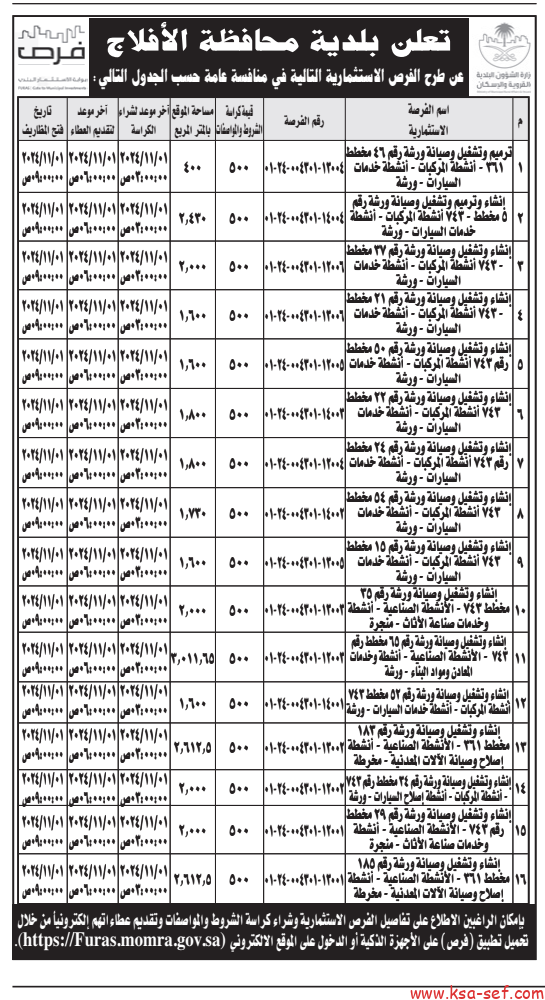 وزارة الشؤون البلدية
القروية والإسكان
تعلن بلدية محافظة الأفلاج
فرص
بوابة الاستثمار البلدي
عن طرح الفرص الاستثمارية التالية في منافسة عامة حسب الجدول التالي:
م
اسم الفرصة
الاستثمارية
رقم الفرصة
قيمة كراسة
الشروط والمواصفات
مساحة الموقع
بالمتر المربع
آخر موعد لشراء
الكراسة
آخر موعد
لتقديم العطاء
تاريخ
فتح المظاريف
١
ترميم وتشغيل وصيانة ورشة رقم ٤٦ مخطط
٣٦١ - أنشطة المركبات - أنشطة خدمات
السيارات - ورشة
٠١-٢٤-٠٠٤٣٠١-١٢٠٠٤
٥٠٠
٤٠٠
٢٠٢٤/١١/٠١ ٢٠٢٤/١١/٠١ ٢٠٢٤/١١/٠١
٠٣:٠٠:٠٠ص ٠٦:٠٠:٠٠ص ٠٩:٠٠:٠٠ص
٢
إنشاء وترميم وتشغيل وصيانة ورشة رقم
٥ مخطط - ٧٤٣ أنشطة المركبات - أنشطة
خدمات السيارات - ورشة
٠١-٢٤-٠٠٤٣٠١-١٤٠٠٤
٥٠٠
٢,٤٣٠
٢٠٢٤/١١/٠١ ٢٠٢٤/١١/٠١ ٢٠٢٤/١١/٠١
٠٣:٠٠:٠٠ص ٠٦:٠٠:٠٠ص ٠٩:٠٠:٠٠ص
٣
إنشاء وتشغيل وصيانة ورشة رقم ٣٧ مخطط
٧٤٣ - أنشطة المركبات - أنشطة خدمات
السيارات - ورشة
٠١-٢٤-٠٠٤٣٠١-١٢٠٠٦
٥٠٠
٢,٠٠٠
٢٠٢٤/١١/٠١ ٢٠٢٤/١١/٠١ ٢٠٢٤/١١/٠١
٠٣:٠٠:٠٠ص ٠٦:٠٠:٠٠ص ٠٩:٠٠:٠٠ص
٤
إنشاء وتشغيل وصيانة ورشة رقم ٢١ مخطط
- ٧٤٣ أنشطة المركبات - أنشطة خدمات
السيارات - ورشة
٠١-٢٤-٠٠٤٣٠١-١٢٠٠٦
٥٠٠
١,٦٠٠
٢٠٢٤/١١/٠١ ٢٠٢٤/١١/٠١ ٢٠٢٤/١١/٠١
٠٣:٠٠:٠٠ص ٠٦:٠٠:٠٠ص ٠٩:٠٠:٠٠ص
٥
إنشاء وتشغيل وصيانة ورشة رقم ٥٠ مخطط
رقم ٧٤٣ أنشطة المركبات - أنشطة خدمات
السيارات - ورشة
٠١-٢٤-٠٠٤٣٠١-١٢٠٠٥
٥٠٠
١,٦٠٠
٢٠٢٤/١١/٠١ ٢٠٢٤/١١/٠١ ٢٠٢٤/١١/٠١
٠٣:٠٠:٠٠ص ٠٦:٠٠:٠٠ص ٠٩:٠٠:٠٠ص
٦
إنشاء وتشغيل وصيانة ورشة رقم ٢٢ مخطط
٧٤٣ أنشطة المركبات - أنشطة خدمات
السيارات - ورشة
٠١-٢٤-٠٠٤٣٠١-١٤٠٠٣
٥٠٠
١,٨٠٠
٢٠٢٤/١١/٠١ ٢٠٢٤/١١/٠١ ٢٠٢٤/١١/٠١
٠٣:٠٠:٠٠ص ٠٦:٠٠:٠٠ص ٠٩:٠٠:٠٠ص
٧
إنشاء وتشغيل وصيانة ورشة رقم ٢٤ مخطط
رقم ٧٤٣ أنشطة المركبات - أنشطة خدمات
السيارات - ورشة
٠١-٢٤-٠٠٤٣٠١-١٢٠٠٤
٥٠٠
١,٨٠٠
٢٠٢٤/١١/٠١ ٢٠٢٤/١١/٠١ ٢٠٢٤/١١/٠١
٠٣:٠٠:٠٠ص ٠٦:٠٠:٠٠ص ٠٩:٠٠:٠٠ص
٨
إنشاء وتشغيل وصيانة ورشة رقم ٥٤ مخطط
٧٤٣ أنشطة المركبات - أنشطة خدمات
السيارات - ورشة
٠١-٢٤-٠٠٤٣٠١-١٤٠٠٢
٥٠٠
١,٧٣٠
٢٠٢٤/١١/٠١ ٢٠٢٤/١١/٠١ ٢٠٢٤/١١/٠١
٠٣:٠٠:٠٠ص ٠٦:٠٠:٠٠ص ٠٩:٠٠:٠٠ص
٩
إنشاء وتشغيل وصيانة ورشة رقم ١٥ مخطط
٧٤٣ أنشطة المركبات - أنشطة خدمات
السيارات - ورشة
٠١-٢٤-٠٠٤٣٠١-١٢٠٠٥
٥٠٠
١,٦٠٠
٢٠٢٤/١١/٠١ ٢٠٢٤/١١/٠١ ٢٠٢٤/١١/٠١
٠٣:٠٠:٠٠ص ٠٦:٠٠:٠٠ص ٠٩:٠٠:٠٠ص
١٠
إنشاء وتشغيل وصيانة ورشة رقم ٣٥
مخطط ٧٤٣ - الأنشطة الصناعية - أنشطة
وخدمات صناعة الأثاث - منجرة
٠١-٢٤-٠٠٤٣٠١-١٢٠٠٣
٥٠٠
٢,٠٠٠
٢٠٢٤/١١/٠١ ٢٠٢٤/١١/٠١ ٢٠٢٤/١١/٠١
٠٣:٠٠:٠٠ص ٠٦:٠٠:٠٠ص ٠٩:٠٠:٠٠ص
١١
إنشاء وتشغيل وصيانة ورشة رقم ٦٥ مخطط رقم
٧٤٣ - الأنشطة الصناعية - أنشطة وخدمات
المعادن ومواد البناء - ورشة
٠١-٢٤-٠٠٤٣٠١-١٢٠٠٣
٥٠٠
٣,٠١١,٦٥
٢٠٢٤/١١/٠١ ٢٠٢٤/١١/٠١ ٢٠٢٤/١١/٠١
٠٣:٠٠:٠٠ص ٠٦:٠٠:٠٠ص ٠٩:٠٠:٠٠ص
١٢
إنشاء وتشغيل وصيانة ورشة رقم ٥٢ مخطط ٧٤٣
أنشطة المركبات - أنشطة خدمات السيارات - ورشة
٠١-٢٤-٠٠٤٣٠١-١٤٠٠١
٥٠٠
١,٦٠٠
٢٠٢٤/١١/٠١ ٢٠٢٤/١١/٠١ ٢٠٢٤/١١/٠١
٠٣:٠٠:٠٠ص ٠٦:٠٠:٠٠ص ٠٩:٠٠:٠٠ص
١٣
إنشاء وتشغيل وصيانة ورشة رقم ١٨٣
مخطط ٣٦١ - الأنشطة الصناعية - أنشطة
إصلاح وصيانة الآلات المعدنية - مخرطة
٠١-٢٤-٠٠٤٣٠١-١٢٠٠٢
٥٠٠
٢,٦١٢,٥
٢٠٢٤/١١/٠١ ٢٠٢٤/١١/٠١ ٢٠٢٤/١١/٠١
٠٣:٠٠:٠٠ص ٠٦:٠٠:٠٠ص ٠٩:٠٠:٠٠ص
١٤
إنشاء وتشغيل وصيانة ورشة رقم ٣٤ مخطط رقم ٧٤٣
- أنشطة المركبات - أنشطة إصلاح السيارات - ورشة
٠١-٢٤-٠٠٤٣٠١-١٢٠٠٢
٥٠٠
٢,٠٠٠
٢٠٢٤/١١/٠١ ٢٠٢٤/١١/٠١ ٢٠٢٤/١١/٠١
٠٣:٠٠:٠٠ص ٠٦:٠٠:٠٠ص ٠٩:٠٠:٠٠ص
١٥
إنشاء وتشغيل وصيانة ورشة رقم ٢٩ مخطط
رقم ٧٤٣ - الأنشطة الصناعية - أنشطة
وخدمات صناعة الأثاث - منجرة
٠١-٢٤-٠٠٤٣٠١-١٢٠٠١
٥٠٠
٢,٠٠٠
٢٠٢٤/١١/٠١ ٢٠٢٤/١١/٠١ ٢٠٢٤/١١/٠١
٠٣:٠٠:٠٠ص ٠٦:٠٠:٠٠ص ٠٩:٠٠:٠٠ص
١٦
إنشاء وتشغيل وصيانة ورشة رقم ١٨٥
مخطط ٣٦١ - الأنشطة الصناعية - أنشطة
إصلاح وصيانة الآلات المعدنية - مخرطة
٠١-٢٤-٠٠٤٣٠١-١٢٠٠١
٥٠٠
٢,٦١٢,٥
٢٠٢٤/١١/٠١ ٢٠٢٤/١١/٠١ ٢٠٢٤/١١/٠١
٠٣:٠٠:٠٠ص ٠٦:٠٠:٠٠ص ٠٩:٠٠:٠٠ص
بإمكان الراغبين الاطلاع على تفاصيل الفرص الاستثمارية وشراء كراسة الشروط والمواصفات وتقديم عطاءاتهم إلكترونياً من خلال
تحميل تطبيق (فرص) على الأجهزة الذكية أو الدخول على الموقع الالكتروني (https://Furas.momra.gov.sa).
www.ksa-sef.com